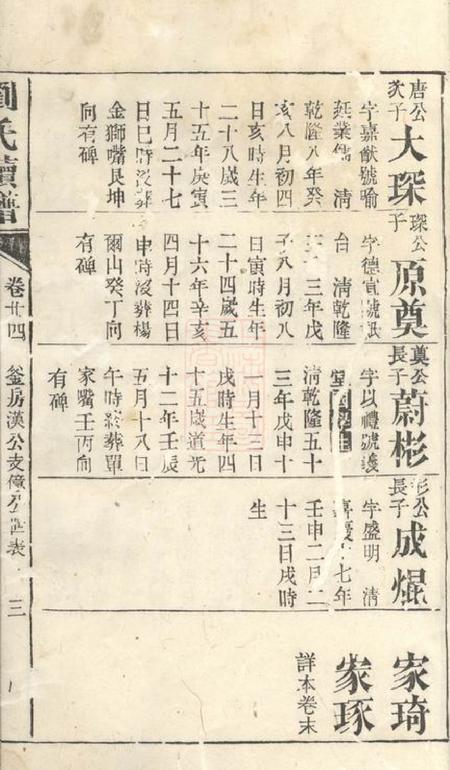 唐公
次子
大琛
字嘉猷號喻
業儒 清
乾隆八年癸
亥八月初四
日亥時生年
二十八歲三
十五年庚寅
五月二十七
日巳時没葬
金獅嘴艮坤
向有碑
琛公
子
原奠
字德號
台 清乾隆
三年戊
子八月初八
日寅時生年
二十四歲五
十六年辛亥
四月十四日
申時没葬楊
爾山癸丁向
有碑
奠公
長子
蔚彬
字以禮號護
堂國學生
清乾隆五十
三年戊申十
月十三日
戌時生年四
十五歲道光
十二年壬辰
五月十八日
午時終葬單
家嘴壬丙向
有碑
彬公
長子
成焜
字盛明 清
嘉慶十七年
壬申二月二
十三日戌時
生
家琦
家琢
詳本卷末
劉氏續譜
卷廿四
釜房漢公支公世表
三